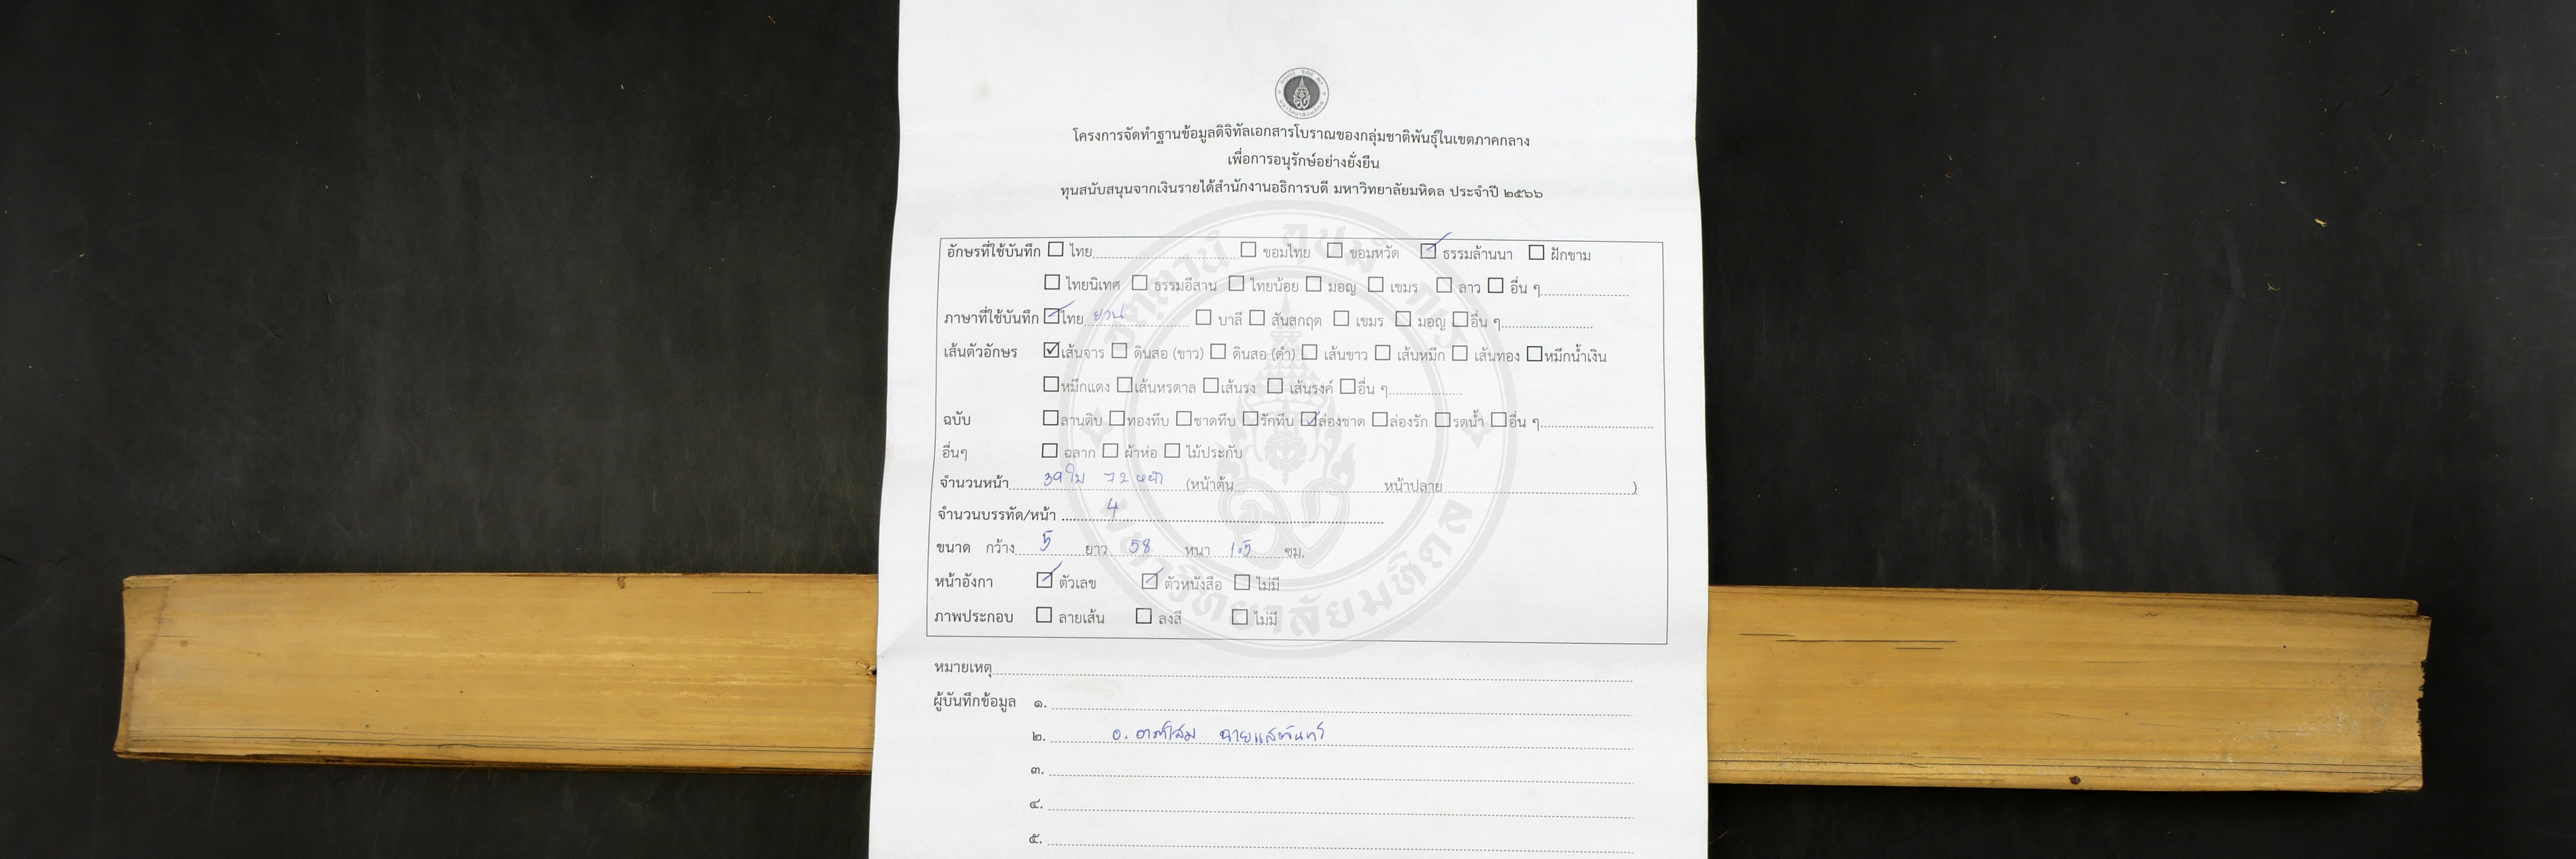 โครงการจัดทำฐานข้อมูลดิจิทัลเอกสารโบราณของกลุ่มชาติพันธุ์ในเขตภาคกลาง
เพื่อการอนุรักษ์อย่างยั่งยืน
ทุนสนับสนุนจากเงินรายได้สำนักงานอธิการบดี มหาวิทยาลัยมหิดล ประจำปี ๒๕๖๖
อักษรที่ใช้บันทึก ☐ ไทย ☐ ขอมไทย ☐ ขอมหวัด ☑ ธรรมล้านนา ☐ ฝักขาม
☐ ไทยนิเทศ ☐ ธรรมอีสาน ☐ ไทยน้อย ☐ มอญ ☐ เขมร ☐ ลาว ☐ อื่น ๆ
ภาษาที่ใช้บันทึก ☑ ไทย ยวน ☐ บาลี ☐ สันสกฤต ☐ เขมร ☐ มอญ ☐ อื่น ๆ
เส้นตัวอักษร ☑ เส้นจาร ☐ ดินสอ (ขาว) ☐ ดินสอ (ดำ) ☐ เส้นขาว ☐ เส้นหมึก ☐ เส้นทอง ☐ หมึกน้ำเงิน
☐ หมึกแดง ☐ เส้นหรดาล ☐ เส้นรง ☐ เส้นรงค์ ☐ อื่น ๆ
ฉบับ ☐ ลานดิบ ☐ ทองทึบ ☐ ชาดทึบ ☐ รักทึบ ☑ ล่องชาด ☐ ล่องรัก ☐ รดน้ำ ☐ อื่น ๆ
อื่นๆ ☐ ฉลาก ☐ ผ้าห่อ ☐ ไม้ประกับ
จำนวนหน้า 39 ใบ 72 หน้า (หน้าต้น หน้าปลาย )
จำนวนบรรทัด/หน้า 4
ขนาด กว้าง 5 ยาว 58 หนา 1.5 ซม.
หน้าอังกา ☑ ตัวเลข ☑ ตัวหนังสือ ☐ ไม่มี
ภาพประกอบ ☐ ลายเส้น ☐ ลงสี ☐ ไม่มี
หมายเหตุ
ผู้บันทึกข้อมูล ๑.
๒. อ.
๓.
๔.
๕.
มหาวิทยาลัยมหิดล